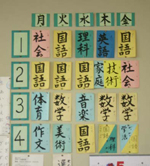 月 火 水 木 金
1 社会 国語 理科 英語 国語
2 国語 国語 国語 家庭 技術
3 体育 数学 音楽 数学 数学
4 作文 美術